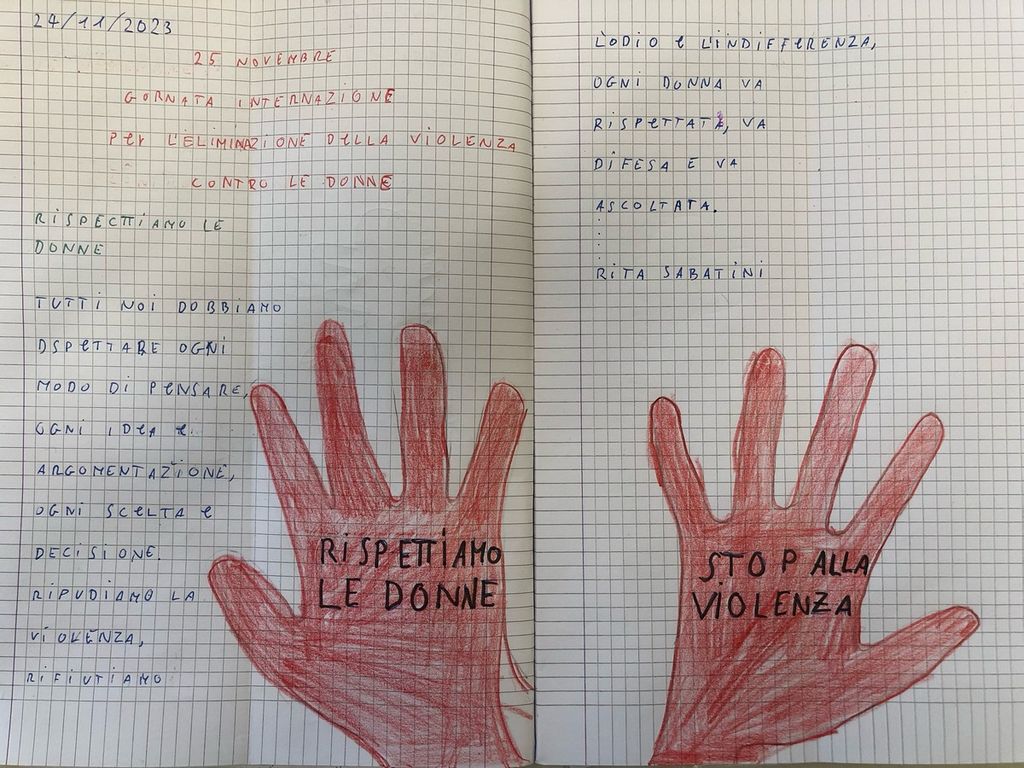 24/11/2023
25 NOVEMBRE
GORNATA INTERNAZIONE
Per L'ELIMINAZIONE DELLA VIOLENZA
CONTRO LE DONNE
RISPECTTIAMO LE
DONNE
TUTTI NOI DOBBIAMO
DSPETTARE OGNI
MODO DI PENSARE,
OGNI IDEA E
ARGOMENTAZIONE,
OGNI SCELTA E
DECISIONE.
RIPUDIAMO LA
VIOLENZA,
RIFIUTIAMO
RISPETTIAMO
LE DONNE
L'ODIO E L'INDIFFERENZA,
OGNI DONNA VA
RISPETTATA, VA
DIFESA E VA
ASCOLTATA.
RITA SABATINI
STOP ALLA
VIOLENZA